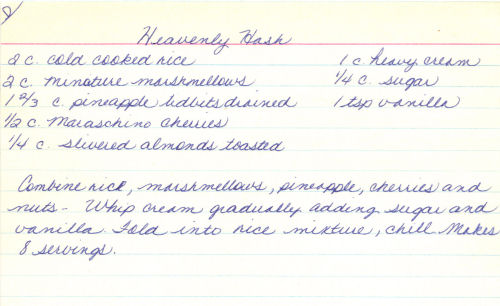 Heavenly Hash
2 c. cold cooked rice 1 c heavy cream
2 c. minature marshmellows 1/4 c. sugar
1 2/3 c. pineapple tidbits drained 1 tsp vanilla
1/2 c. Maraschino Cherries
1/4 c. slivered almonds toasted
Combine rice, marshmellows, pineapple, cherries and
nuts - Whip cream gradually adding sugar and
vanilla. Fold into rice mixture, chill. Makes
8 servings.